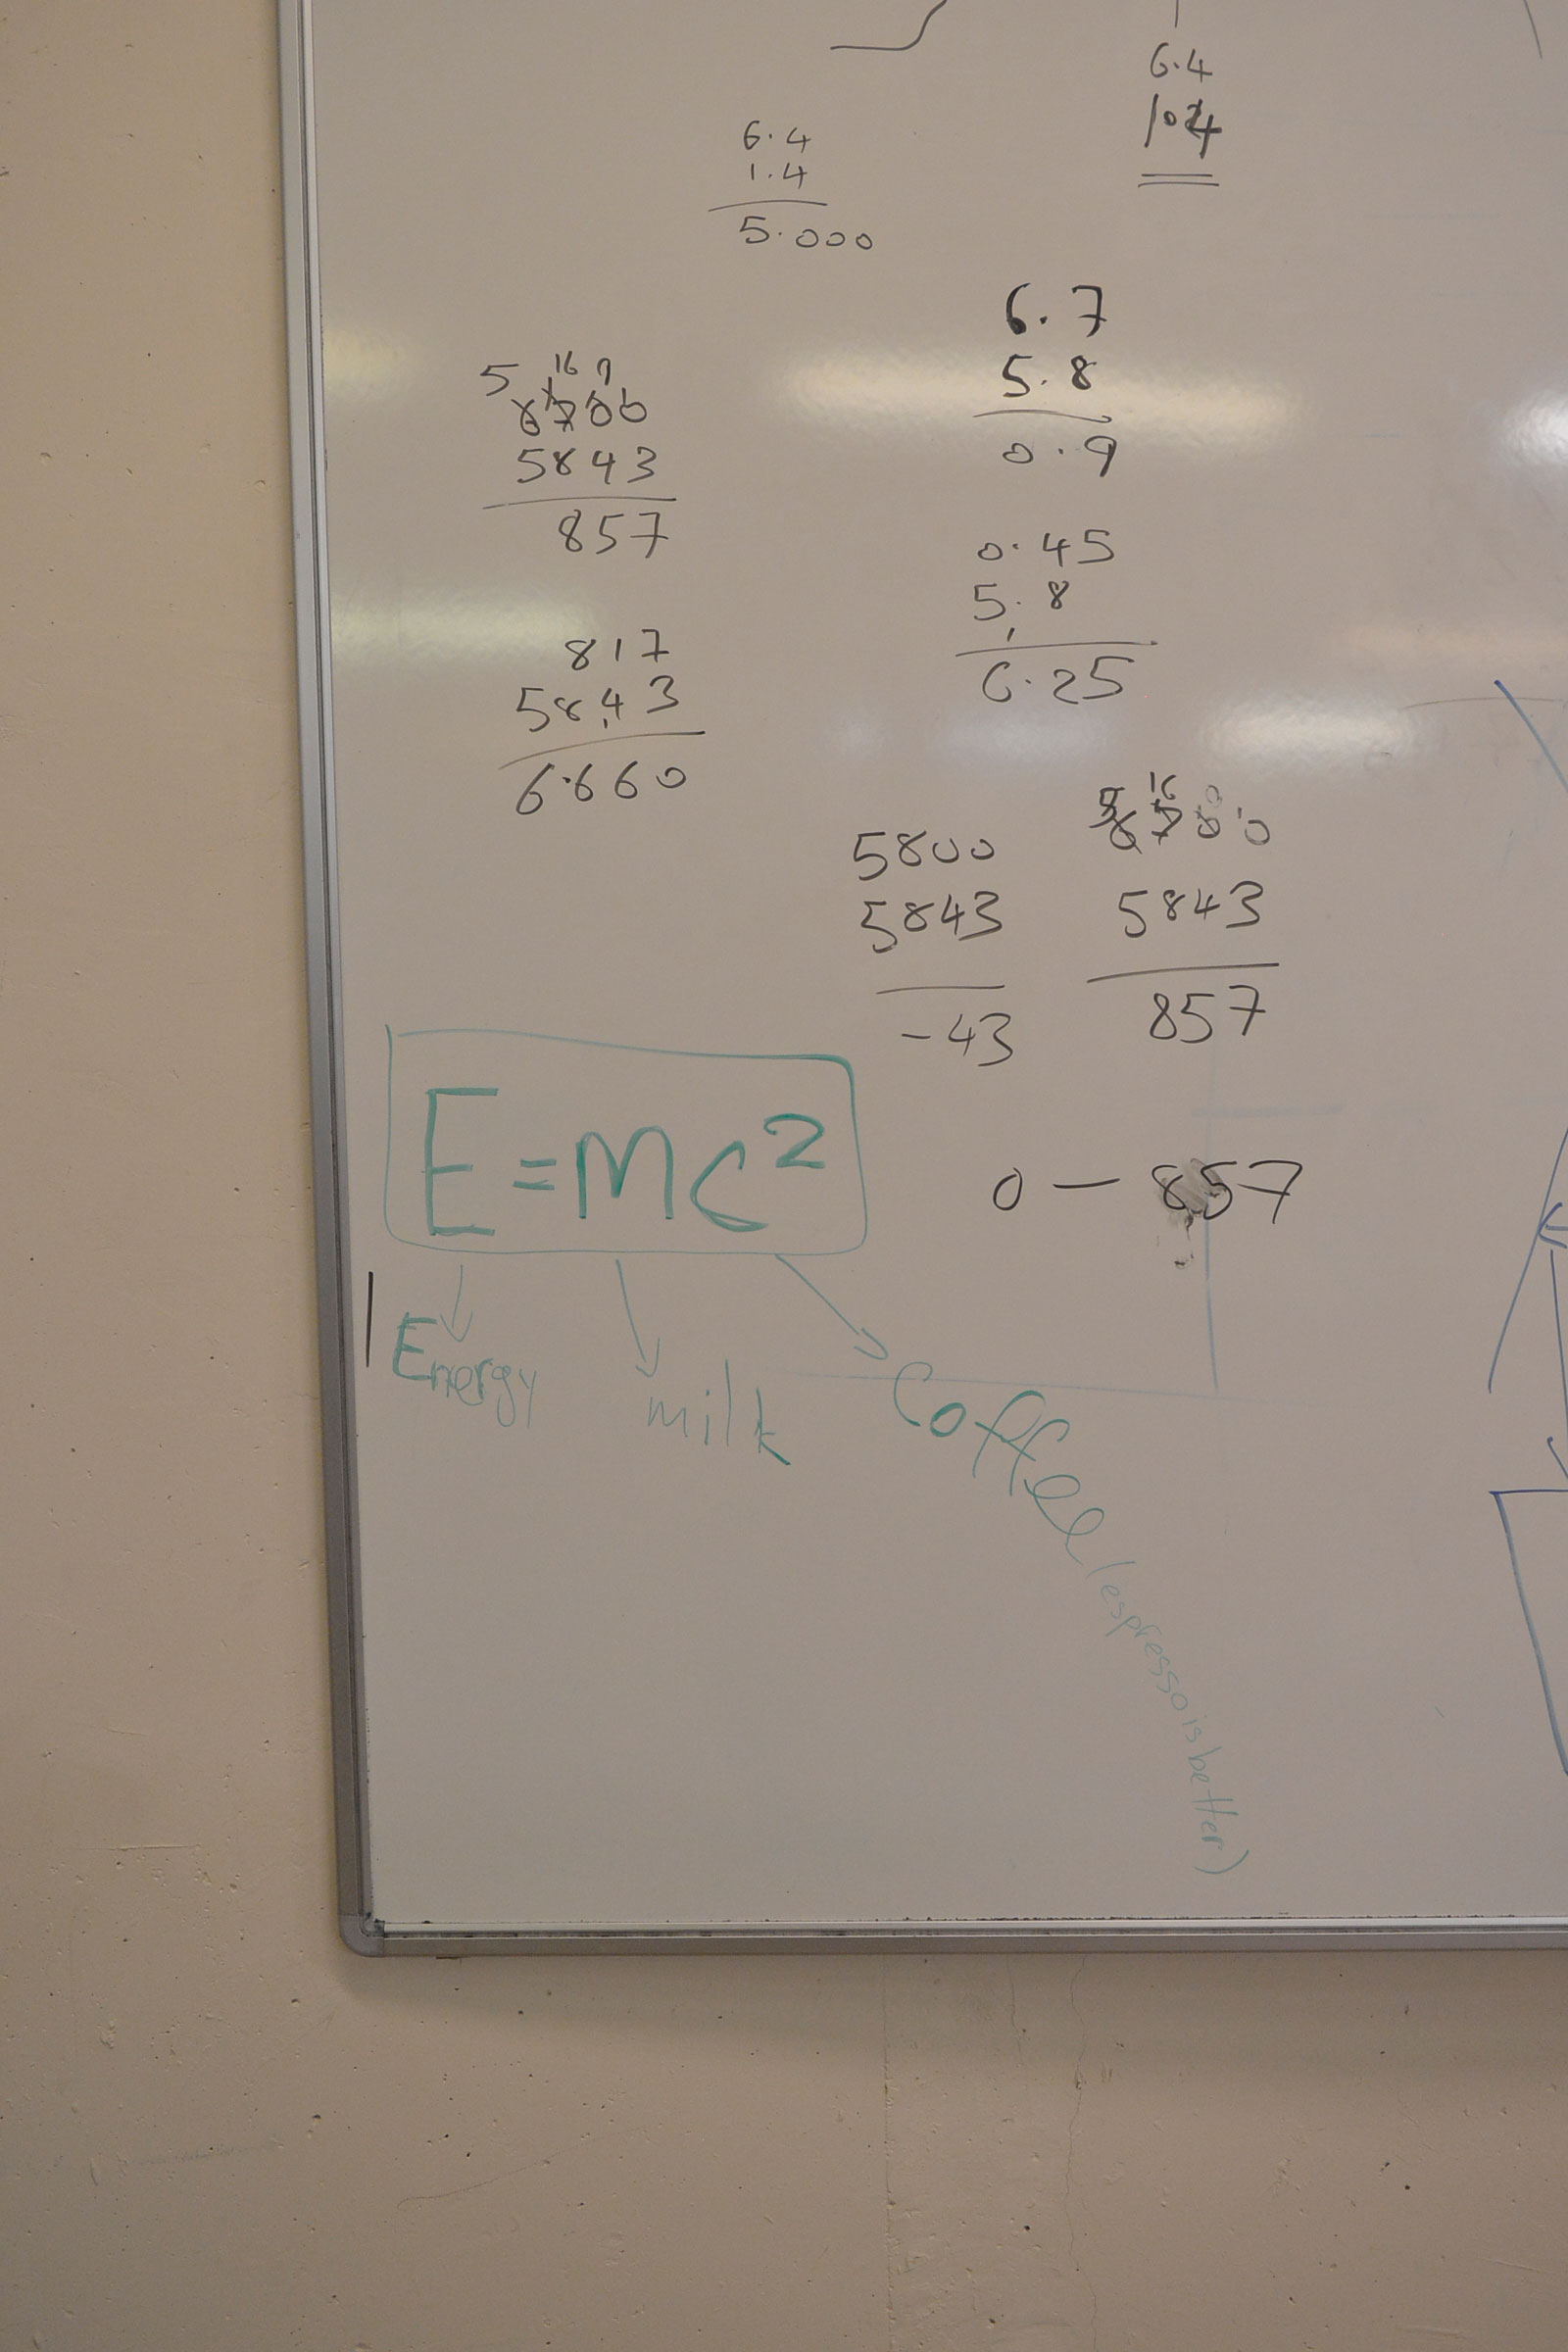 6.4
104
6.4
1.4
5.000
6.7
5.8
0.9
5 16 9
6700
5843
857
0.45
5.8
6.25
817
5843
6.660
5 16
6700
5843
857
5800
5843
-43
E=MC²
0 - 857
Energy
milk
Coffee (espresso is better)